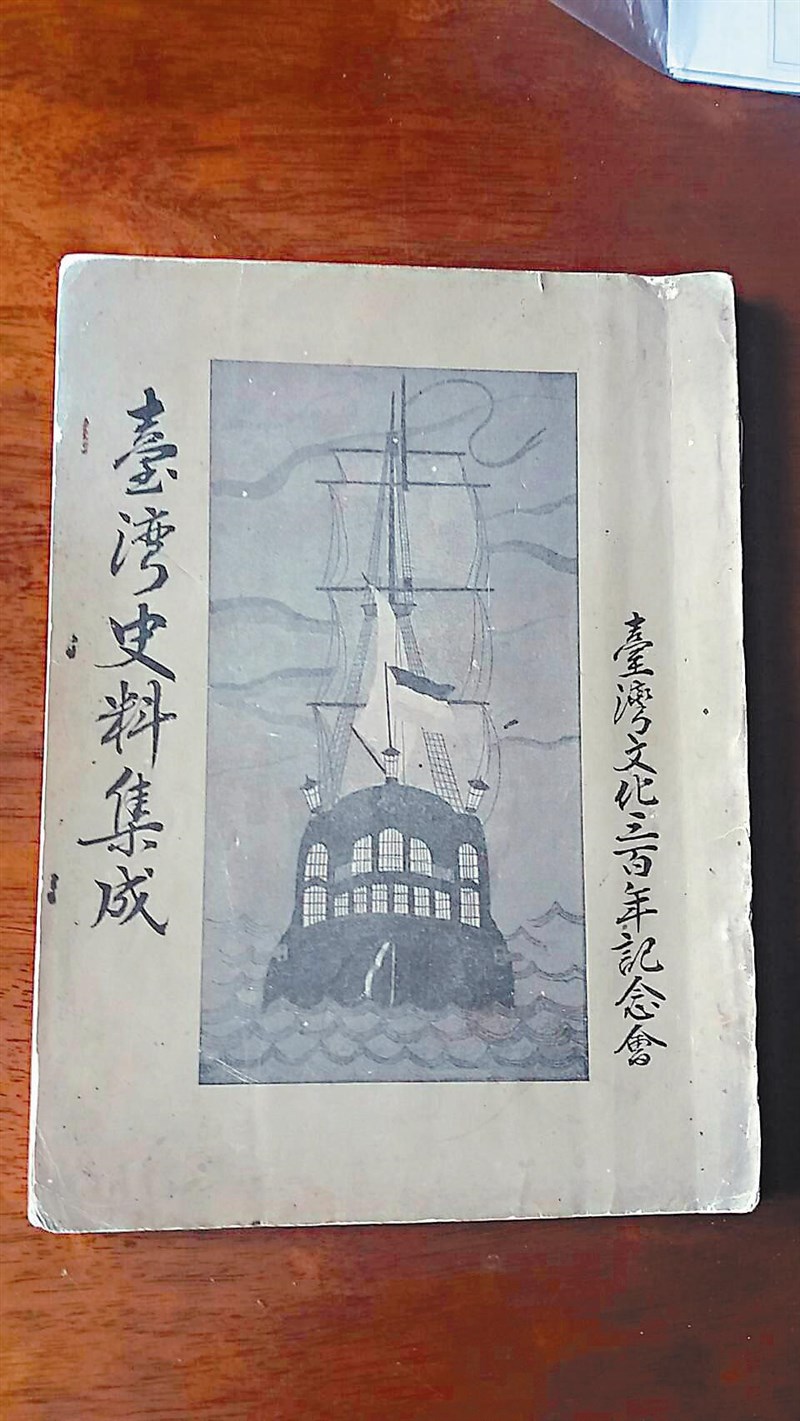 臺灣文化三百年記念會
臺湾史料集成